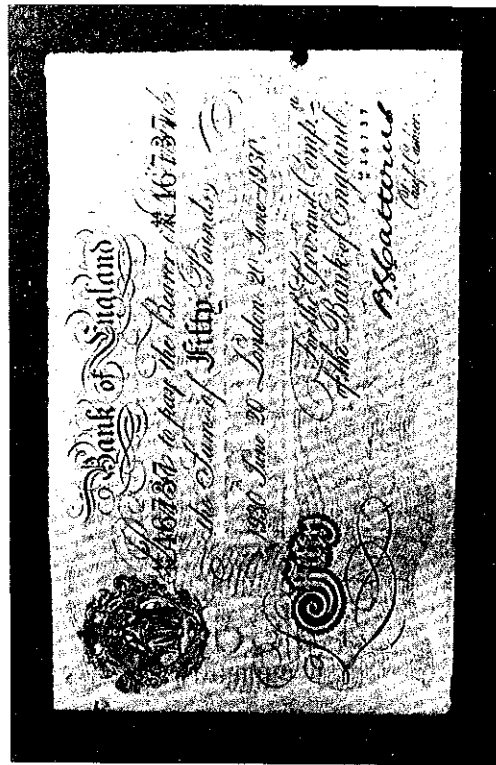 Bank of England
46737 to pay the Bearer 46737
the Sum of Fifty Pounds
1930 June 20 London 20 June 1930
For the Gov.r and Comp.a
of the Bank of England
Fifty
Chief Cashier